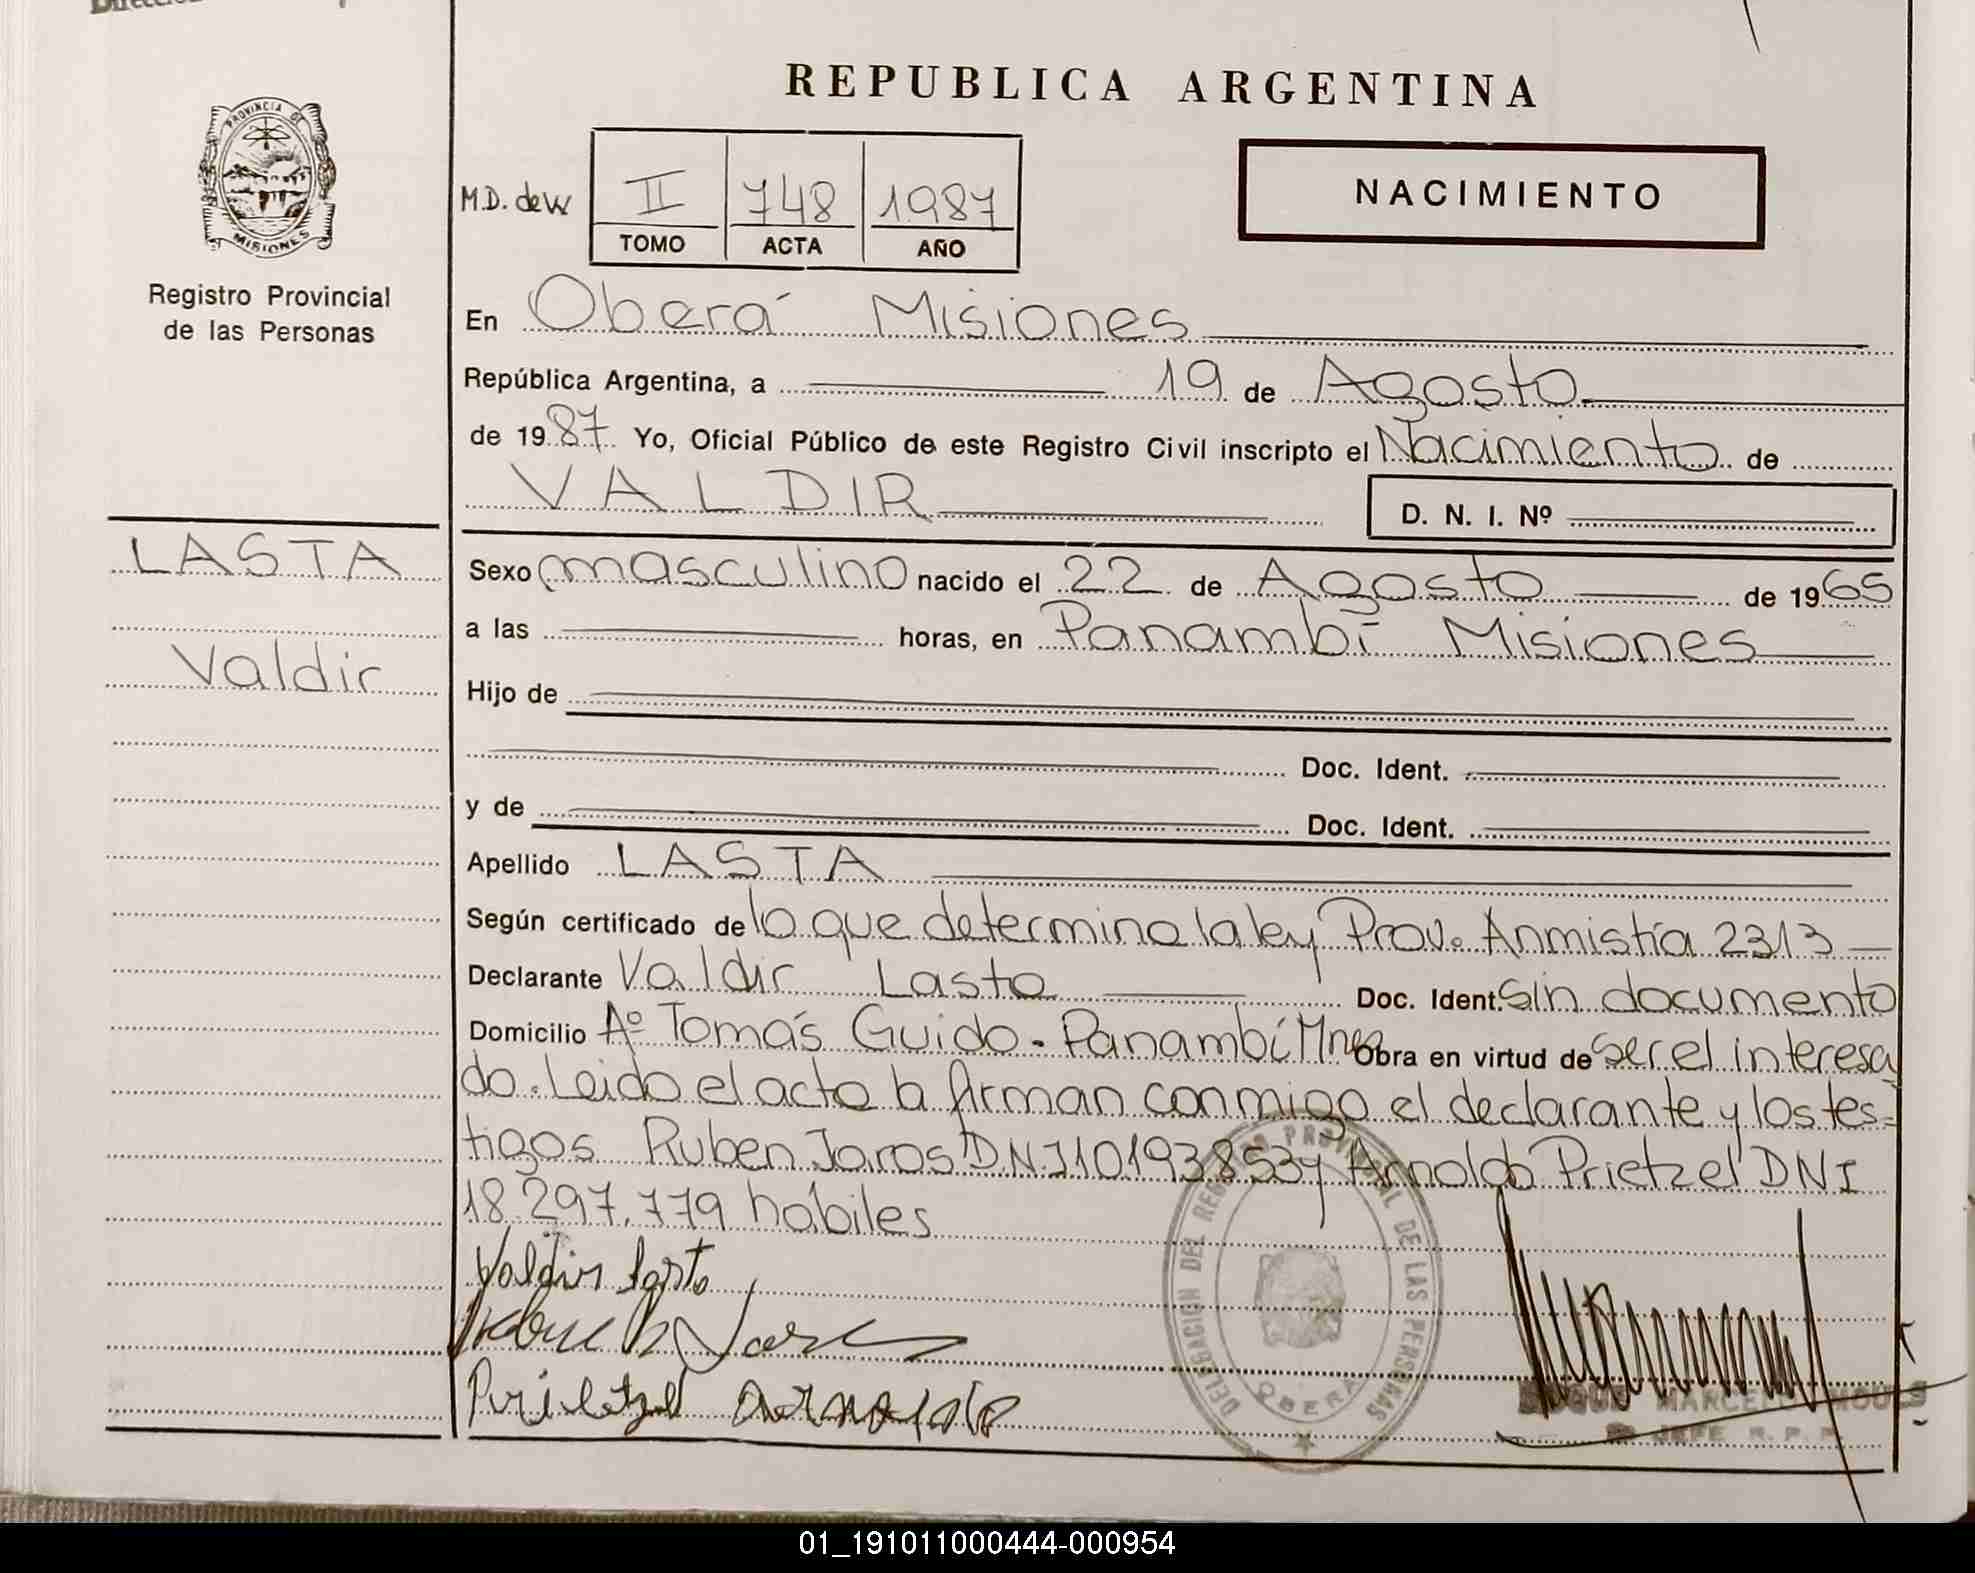 REPUBLICA ARGENTINA
PROVINCIA DE
MISIONES
Registro Provincial
de las Personas
M.D. de
II 748 1987
TOMO ACTA AÑO
NACIMIENTO
En Oberá Misiones
República Argentina, a 19 de Agosto
de 1987 Yo, Oficial Público de este Registro Civil inscripto el Nacimiento de
VALDIR D. N. I. Nº
LASTA
Valdir
Sexo masculino nacido el 22 de Agosto de 1965
a las horas, en Panambí Misiones
Hijo de
Doc. Ident.
y de Doc. Ident.
Apellido LASTA
Según certificado de lo que determina la ley Prov. Anmistía 2313
Declarante Valdir Lasta Doc. Ident. Sin documento
Domicilio Aº Tomás Guido - Panambí Mnes Obra en virtud de ser el interesa
do. Leido el acta la firman conmigo el declarante y los tes=
tigos Ruben Jaros DNI 10193853 y Arnoldo Prietzel DNI
18.297.779 hábiles
Valdir Lasta
Prietzel Arnoldo
DELEGACION DEL REGISTRO PROVINCIAL DE LAS PERSONAS
OBERA
MARCELO
JEFE R. P. P.
01_191011000444-000954